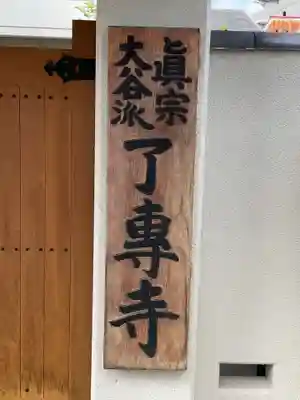 眞宗
大谷派
了專寺